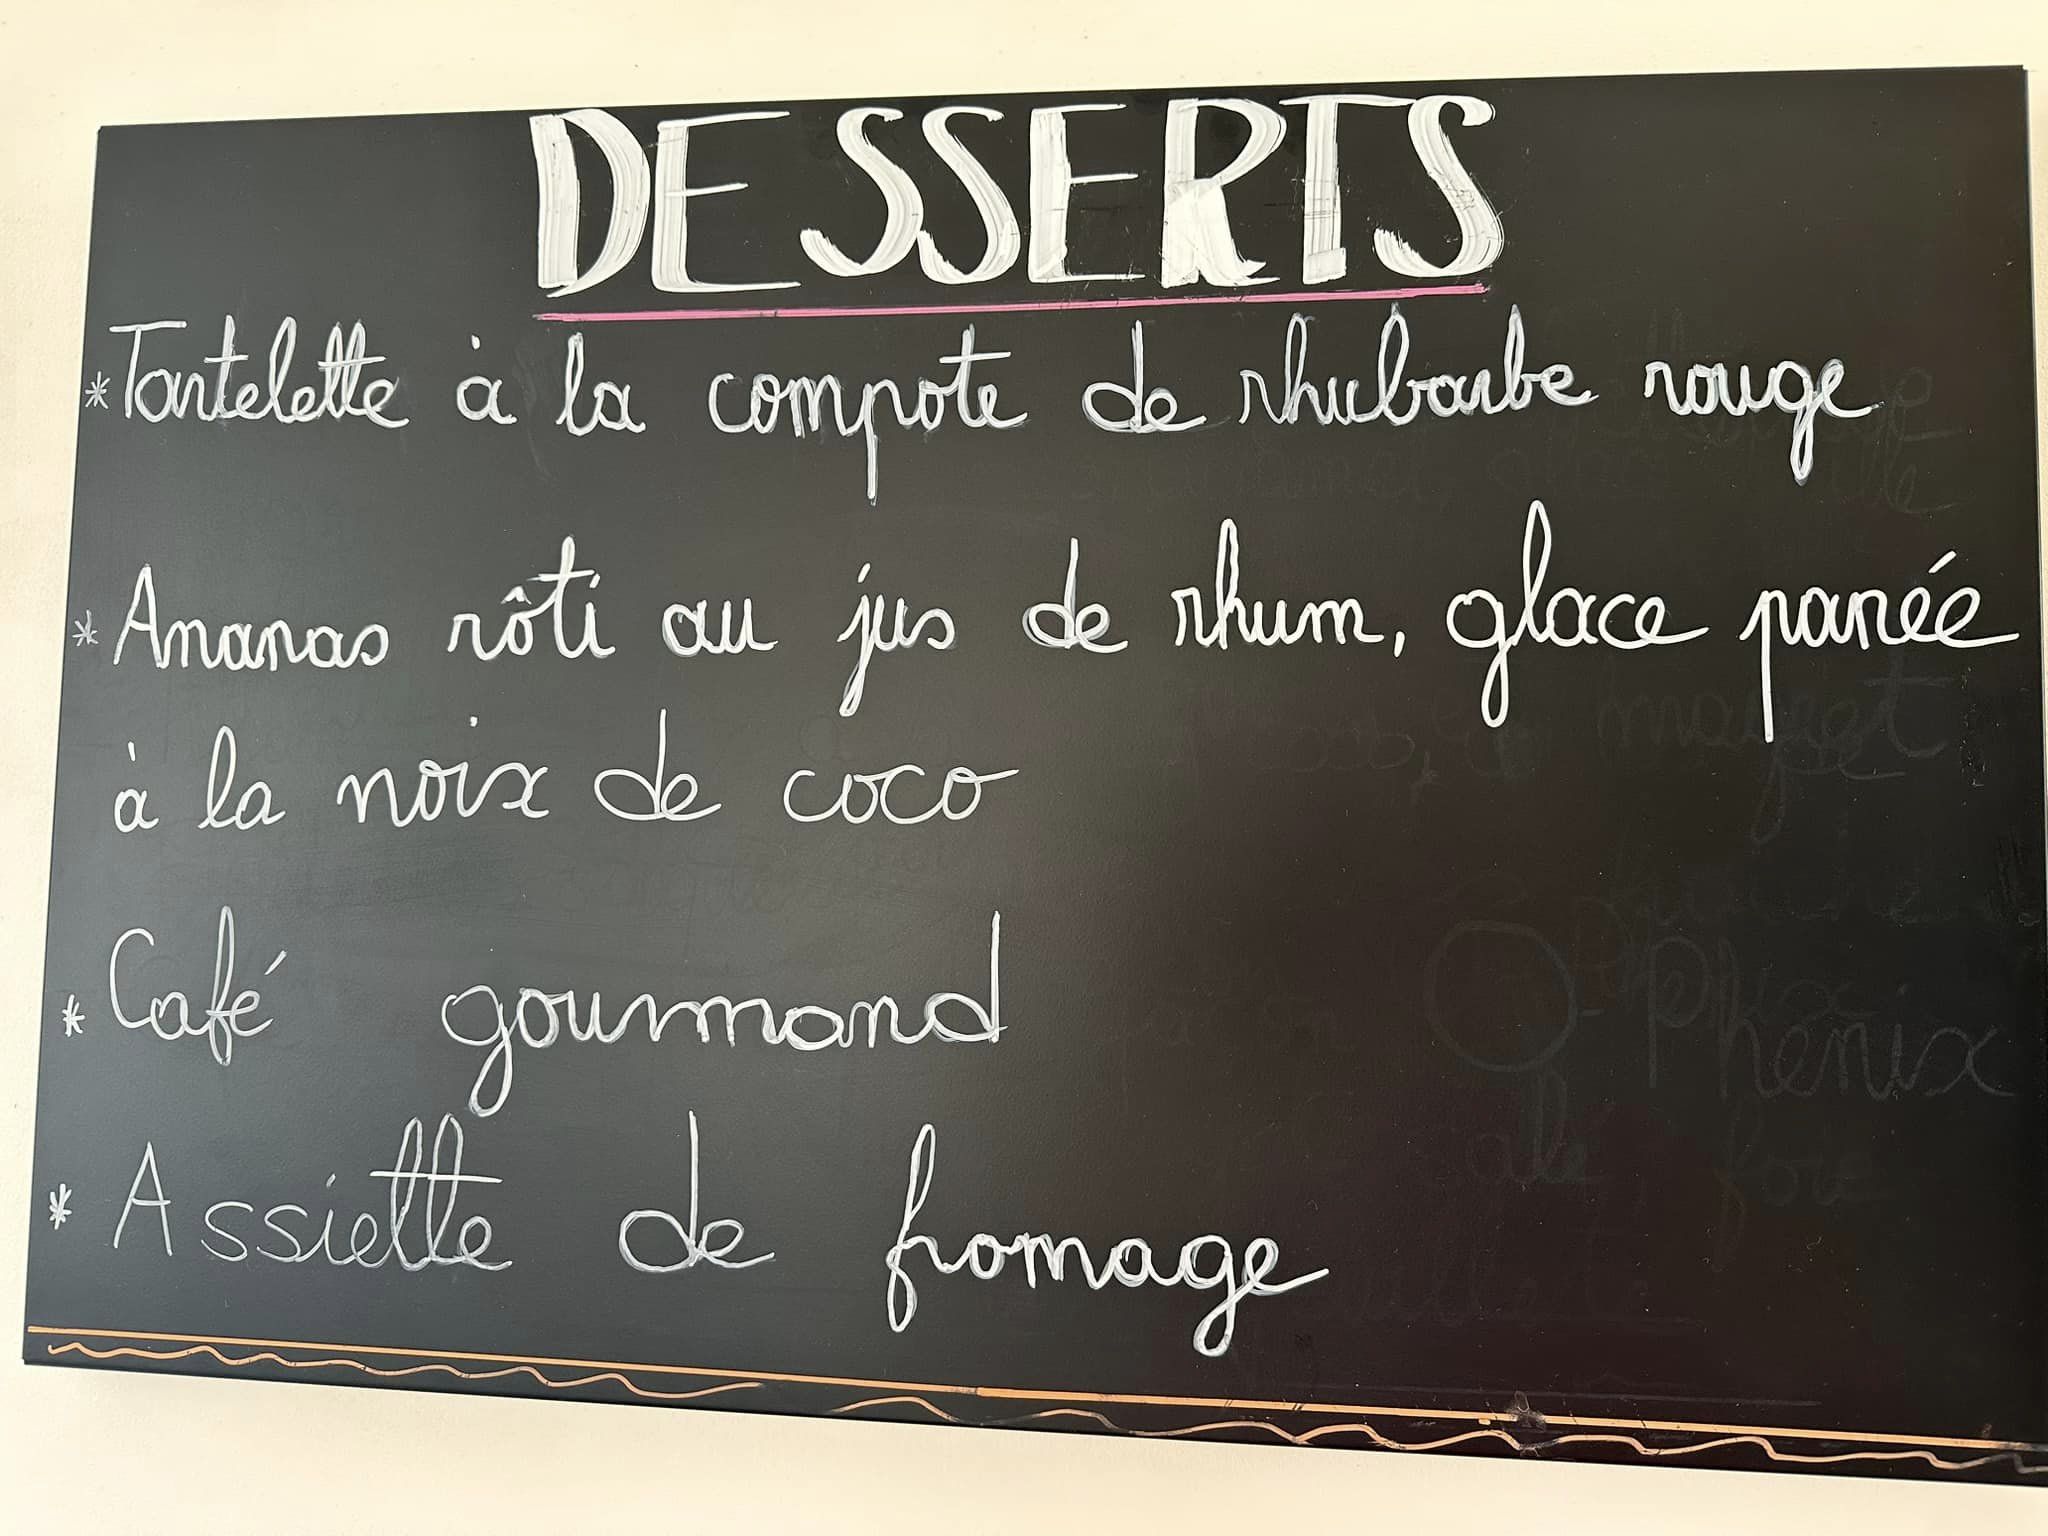 DESSERTS
*Tartelette à la compote de rhubarbe rouge
*Ananas rôti au jus de rhum, glace panée
à la noix de coco
*Café gourmand
*Assiette de fromage
Phénix